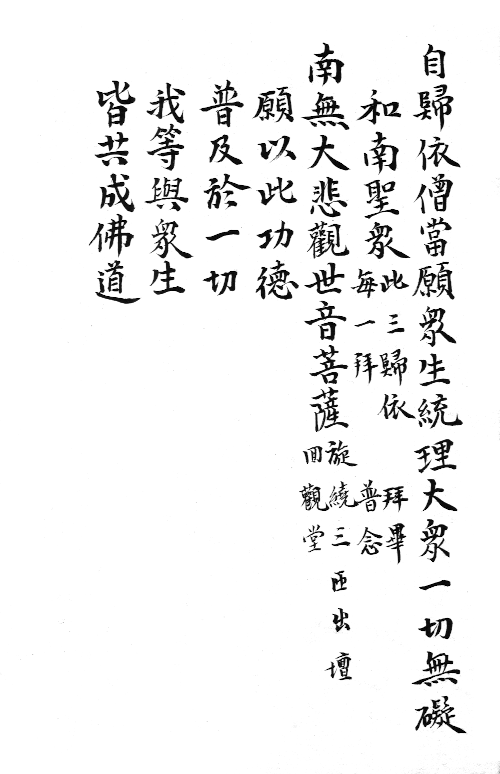 自歸依僧當願衆生統理大衆一切無礙
和南聖衆
此三歸依 拜畢
每一拜 普念
南無大悲觀世音菩薩
旋繞三匝出壇
囬觀堂
願以此功德
普及於一切
我等與衆生
皆共成佛道